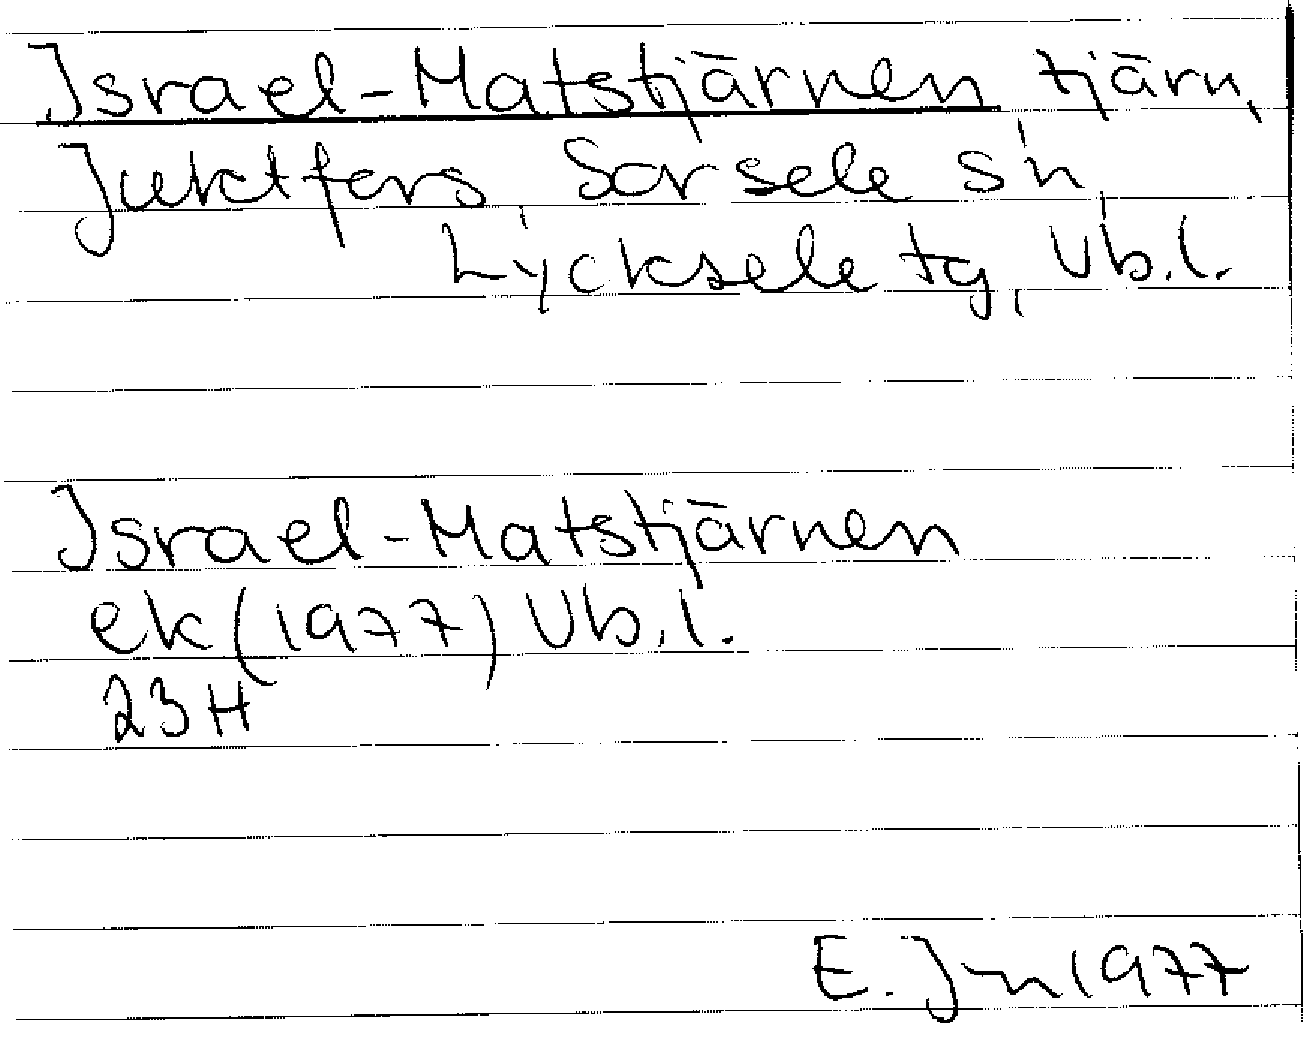 Israel-Matstjärnen tjärn,
Juktfors, Sorsele sn,
Lycksele tg, Vb.l.
Israel-Matstjärnen
ek (1977) Vb.l.
23H
E. Jn 1977